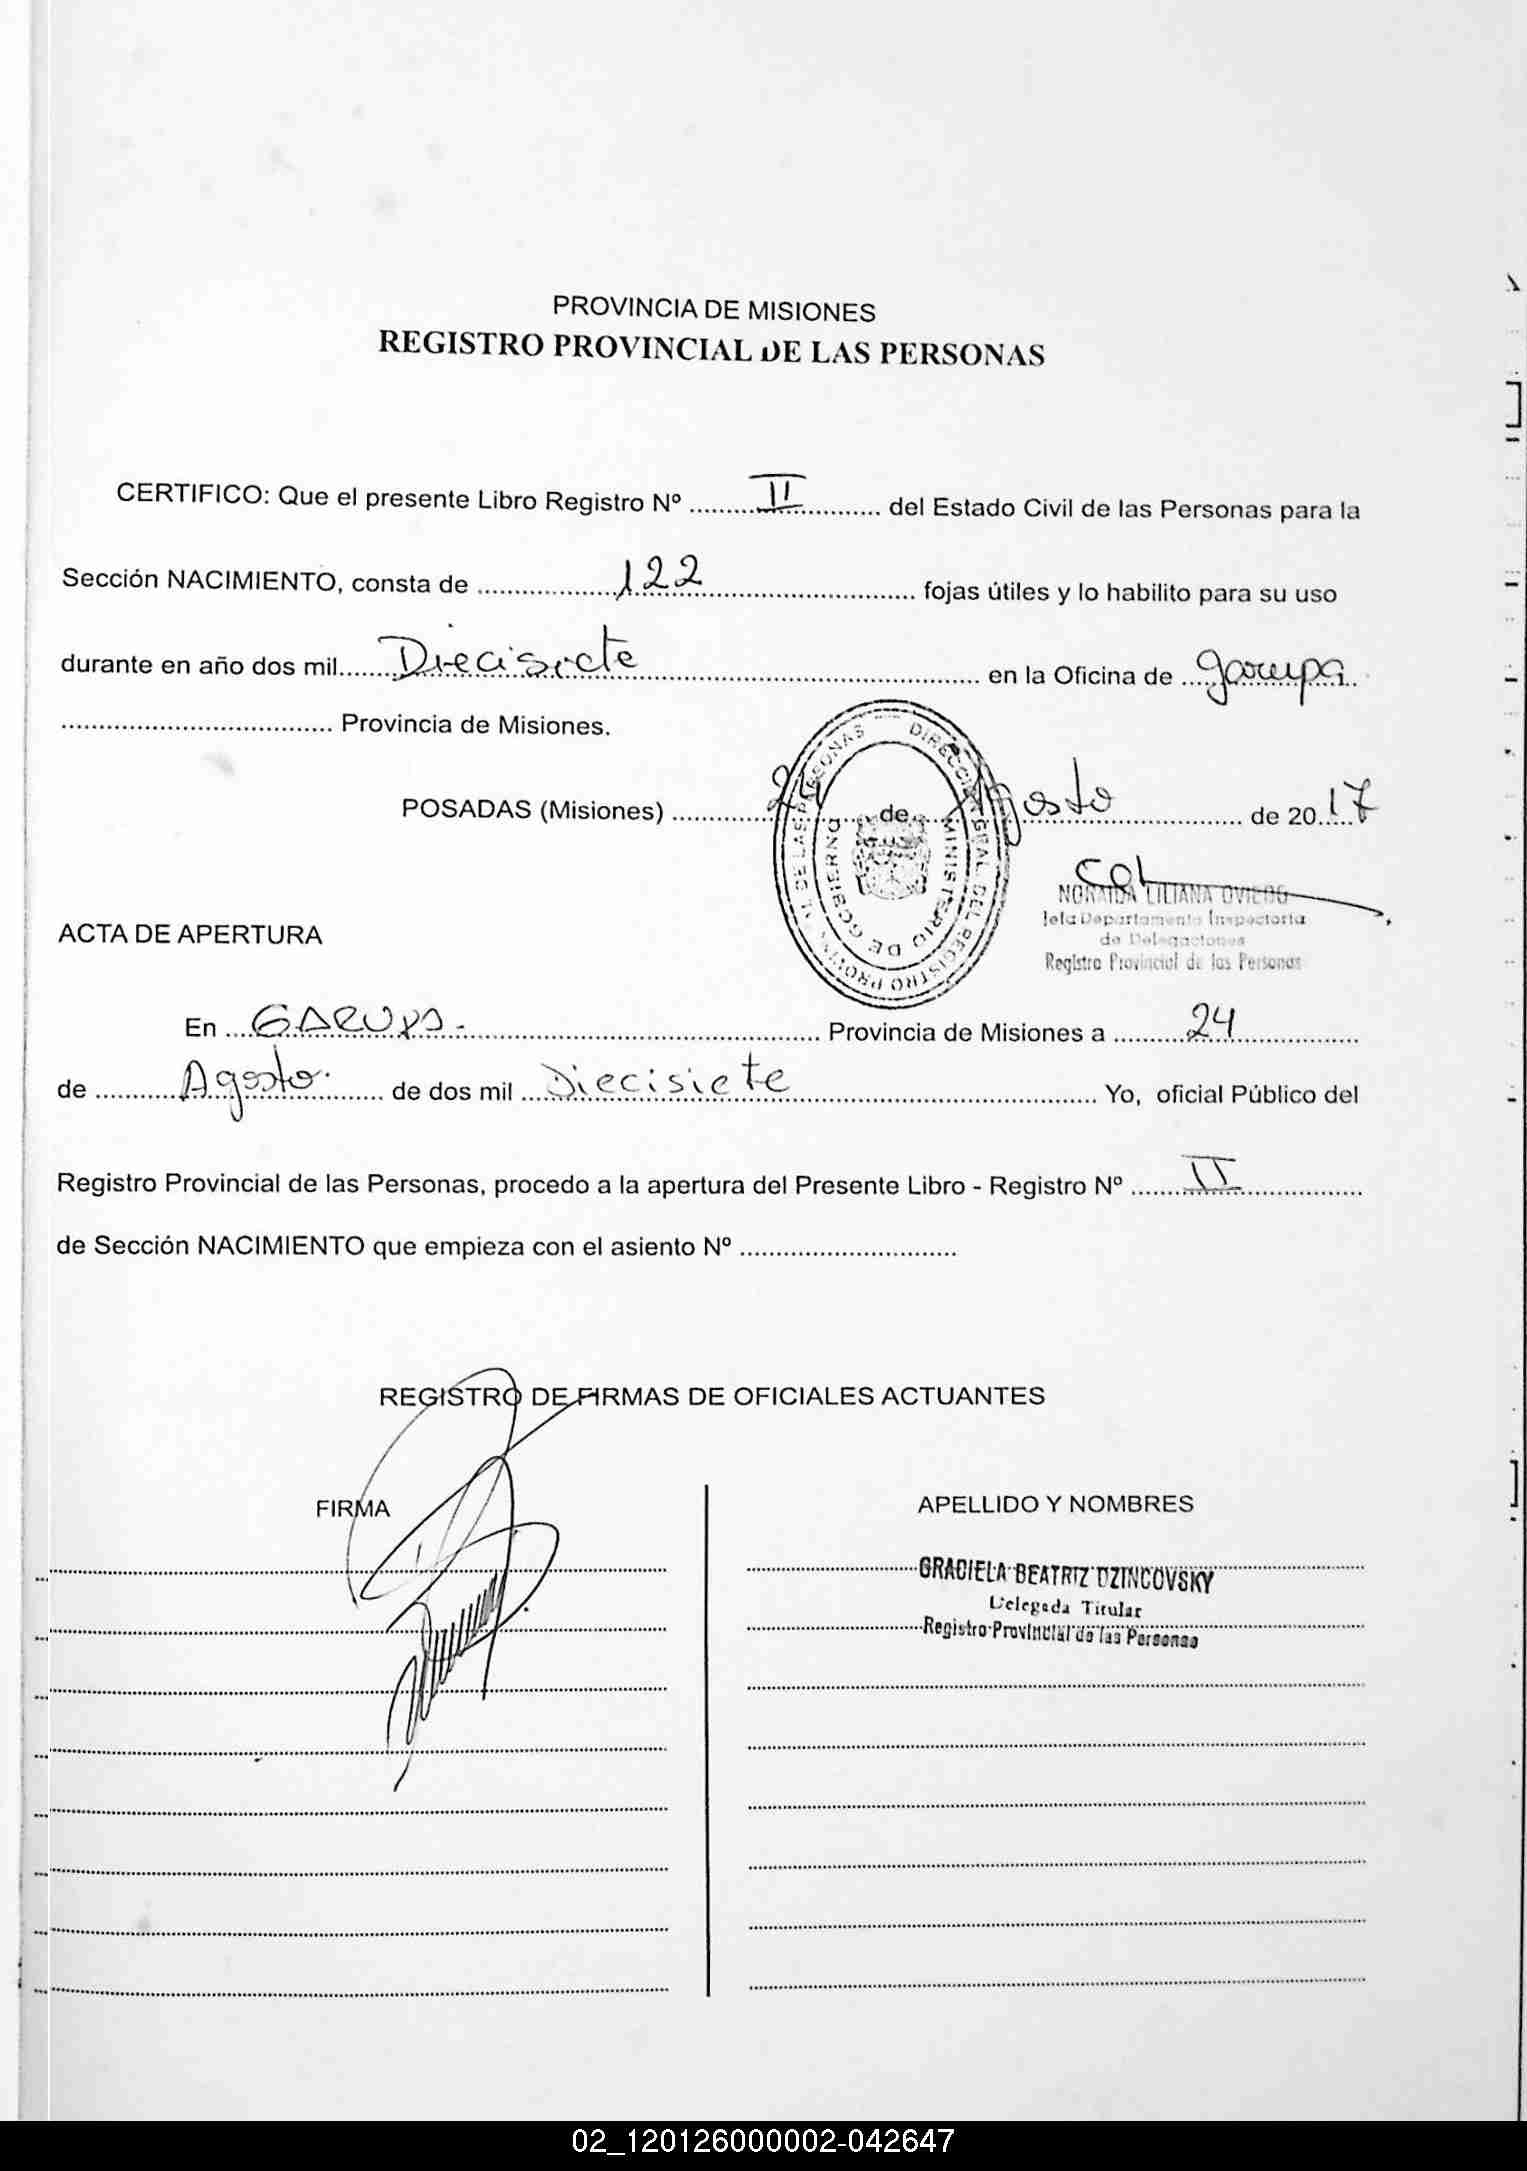 PROVINCIA DE MISIONES
REGISTRO PROVINCIAL DE LAS PERSONAS
CERTIFICO: Que el presente Libro Registro Nº ........II.......... del Estado Civil de las Personas para la
Sección NACIMIENTO, consta de ..........122.......... fojas útiles y lo habilito para su uso
durante en año dos mil......Diecisiete.......... en la Oficina de ....Garupa..
.......... Provincia de Misiones.
POSADAS (Misiones) .......... de ....Agosto.......... de 20..17
NORAIDA LILIANA OVIEDO
Jefa Departamento Inspectoria
de Delegaciones
Registro Provincial de las Personas
DIRECCION GRAL. DEL REGISTRO PROVINCIAL DE LAS PERSONAS
MINISTERIO DE GOBIERNO
ACTA DE APERTURA
En ...GARUPA.......... Provincia de Misiones a ..........24..........
de ..........Agosto.......... de dos mil ...Diecisiete.......... Yo, oficial Público del
Registro Provincial de las Personas, procedo a la apertura del Presente Libro - Registro Nº .......II..........
de Sección NACIMIENTO que empieza con el asiento Nº ..........
REGISTRO DE FIRMAS DE OFICIALES ACTUANTES
FIRMA
APELLIDO Y NOMBRES
GRACIELA BEATRIZ DZINCOVSKY
Delegada Titular
Registro Provincial de las Personas
02_120126000002-042647